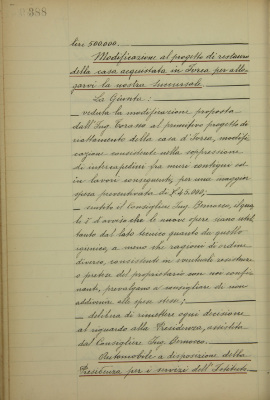 388
lire 500.000.
Modificazione al progetto di restauro
della casa acquistata in Ivrea per allo-
garvi la nostra Succursale.
La Giunta:
- veduta la modificazione proposta
dall'Ing. al primitivo progetto di
riattamento della casa d'Ivrea, modifi-
cazione consistente nella soppressione
di intercapedine fra muri contigui ed
in lavori conseguenti, per una maggior
spesa preventivata di £ 45.000;
- sentito il Consigliere Ing. Bernocco, il qua-
le è d'avviso che le nuove opere siano utili
tanto dal lato tecnico quanto da quello
igienico, a meno che ragioni di ordine
diverso, consistenti in eventuali
o pretese del proprietario con noi confi-
nante, prevalgano a consigliare di non
addivenire alla spesa stessa;
- delibera di rimettere ogni decisione
al riguardo alla Presidenza, assistita
dal Consigliere Ing. Bernocco.
Automobile a disposizione della
Presidenza per i servizi dell'Istituto.